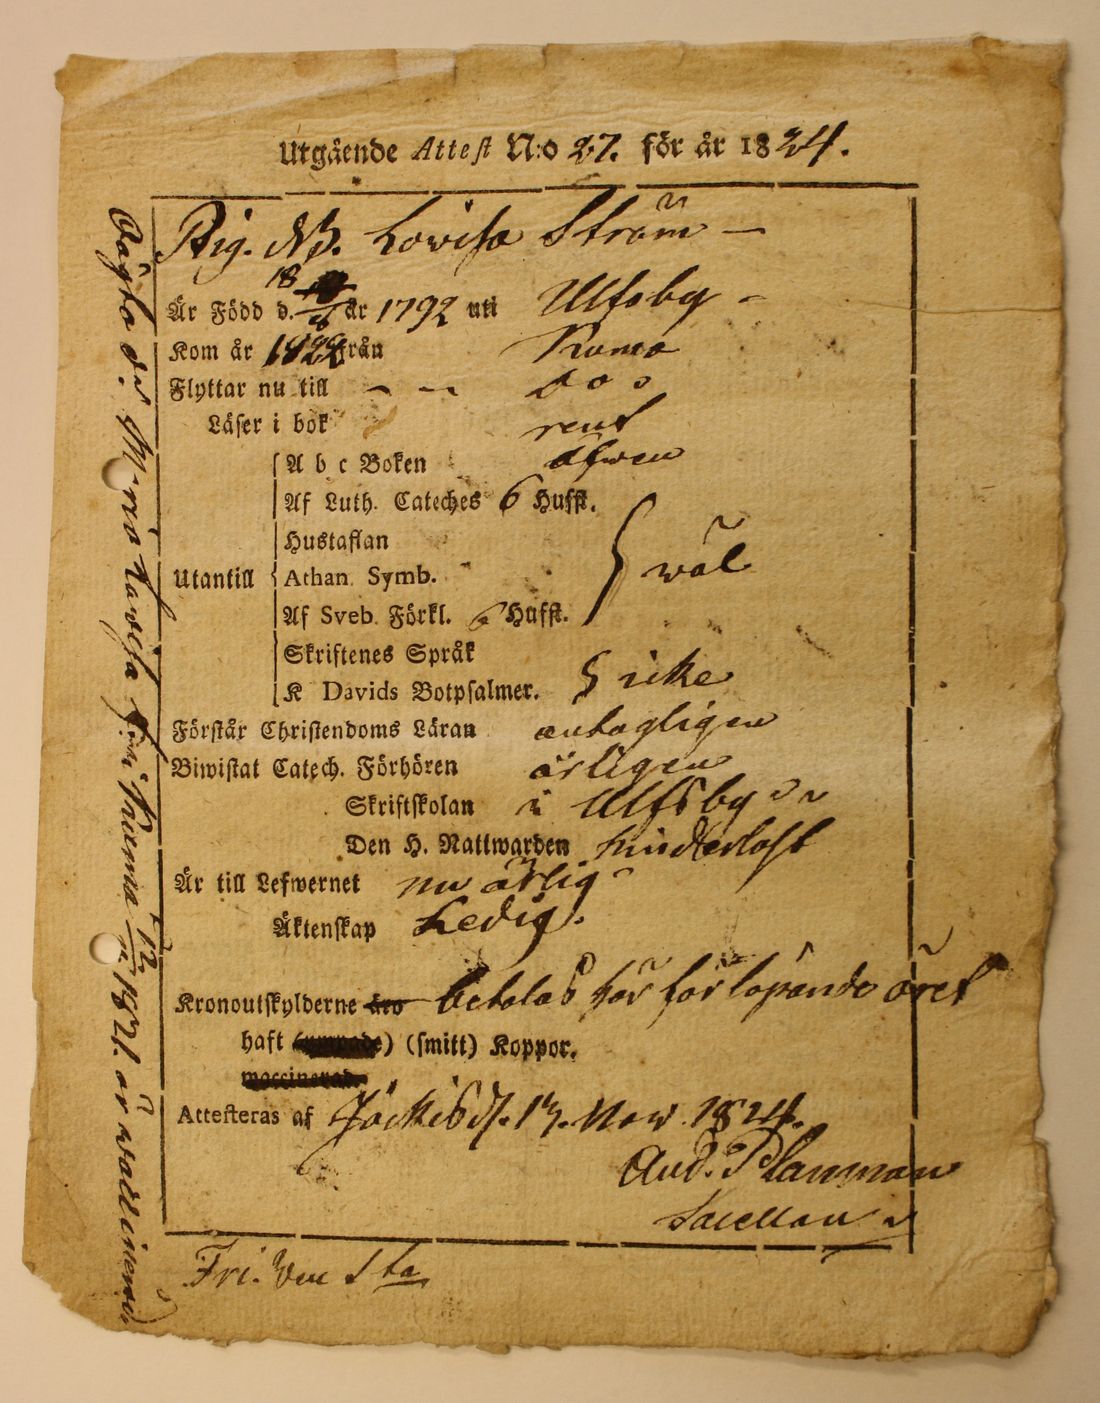 Utgående Attest N:o 27. för år 1824.
Pig. Lowisa Ström
18
Är Född d. år 1792 uti Ulfsby
Kom år från Kumo
Flyttar nu till do
Läser i bok rent
A b c Boken äfwen
Af Luth. Cateches 6 Hufst.
Hustaflan
Utantill Athan. Symb. wäl
Af Sveb. Förkl. 6 Hufst.
Skriftenes Språk
K Davids Botpsalmer. icke
Förstår Christendoms Läran antagligen
Biwistat Catech. Förhören årligen
Skriftskolan i Ulfsby
Den H. Nattwarden hinderlöst
Är till Lefwernet nu ärlig
Äktenskap Ledig.
Kronoutskylderne äro betalas här för löpande året
haft (smitt) Koppor.
waccinerad
Attesteras af Jockis d. 13. Now. 1824.
And. Planman
Sacellan
Fri.
Maria Lowisa 12 1821. är waccinerad